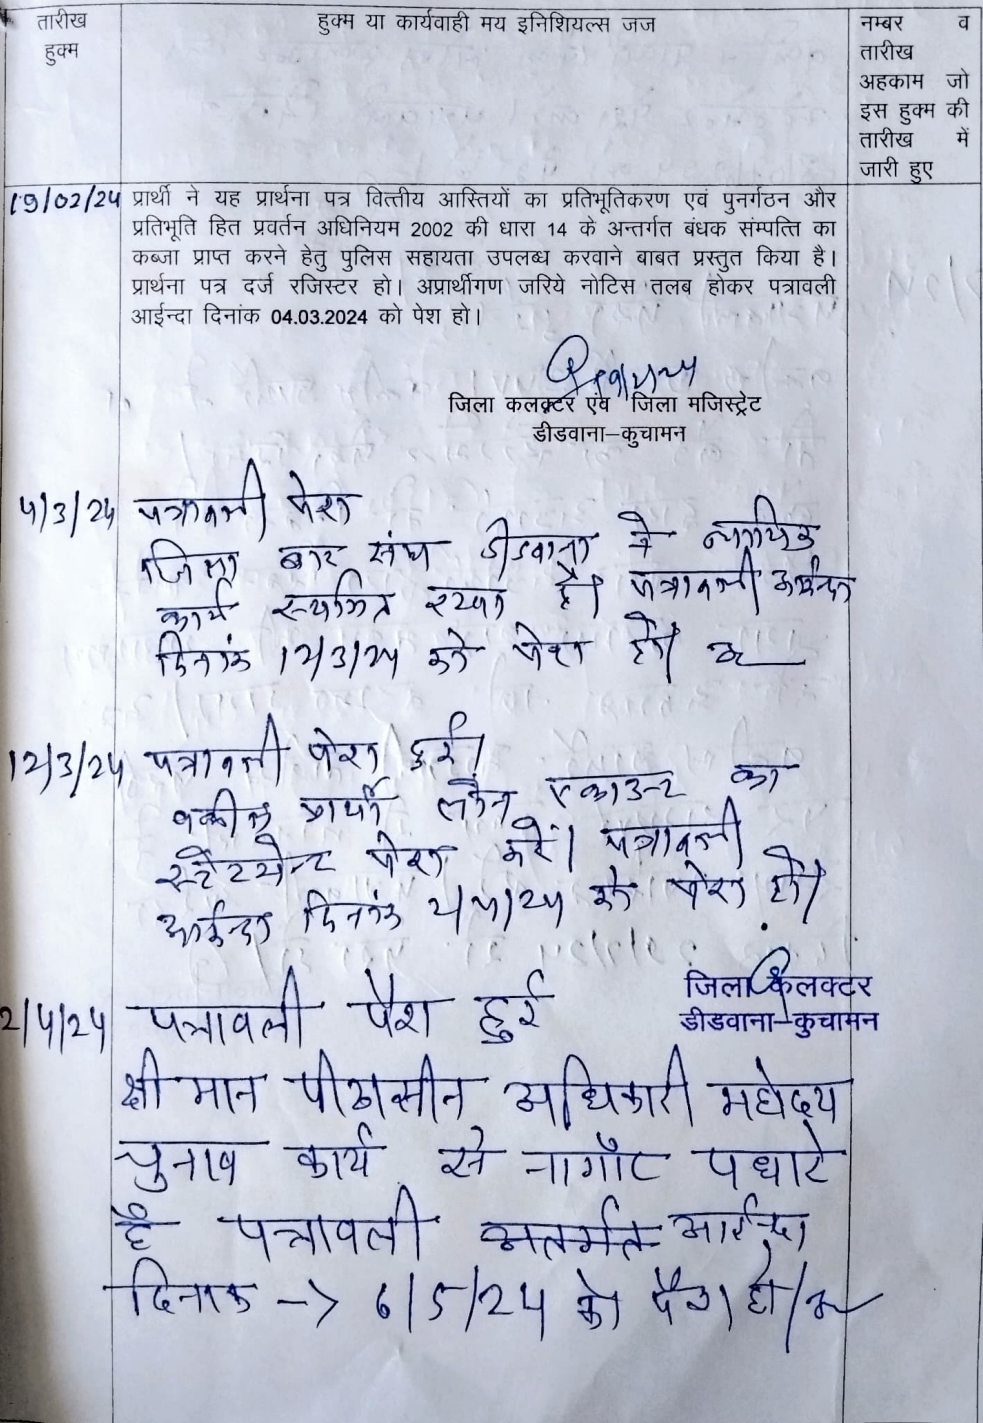 तारीख
हुक्म
हुक्म या कार्यवाही मय इनिशियल्स जज
नम्बर व
तारीख
अहकाम जो
इस हुक्म की
तारीख में
जारी हुए
19/02/24 प्रार्थी ने यह प्रार्थना पत्र वित्तीय आस्तियों का प्रतिभूतिकरण एवं पुनर्गठन और
प्रतिभूति हित प्रवर्तन अधिनियम 2002 की धारा 14 के अन्तर्गत बंधक संम्पत्ति का
कब्जा प्राप्त करने हेतु पुलिस सहायता उपलब्ध करवाने बाबत प्रस्तुत किया है।
प्रार्थना पत्र दर्ज रजिस्टर हो। अप्रार्थीगण जरिये नोटिस तलब होकर पत्रावली
आईन्दा दिनांक 04.03.2024 को पेश हो।
जिला कलक्टर एंव जिला मजिस्ट्रेट
डीडवाना–कुचामन
4/3/24 पत्रावली पेश
जिला बार संघ डीडवाना ने न्यायिक
कार्य स्थगित रखा है। पत्रावली आईन्दा
दिनांक 12/3/24 को पेश हो।
12/3/24 पत्रावली पेश हुई।
वकील प्रार्थी लोन एकाउन्ट का
स्टेटमेन्ट पेश करें। पत्रावली
आईन्दा दिनांक 2/4/24 को पेश हो।
जिला कलक्टर
डीडवाना–कुचामन
2/4/24 पत्रावली पेश हुई
श्रीमान पीठासीन अधिकारी महोदय
चुनाव कार्य से नागौर पधारे
हैं पत्रावली आईन्दा
दिनांक -> 6/5/24 को पेश हो।